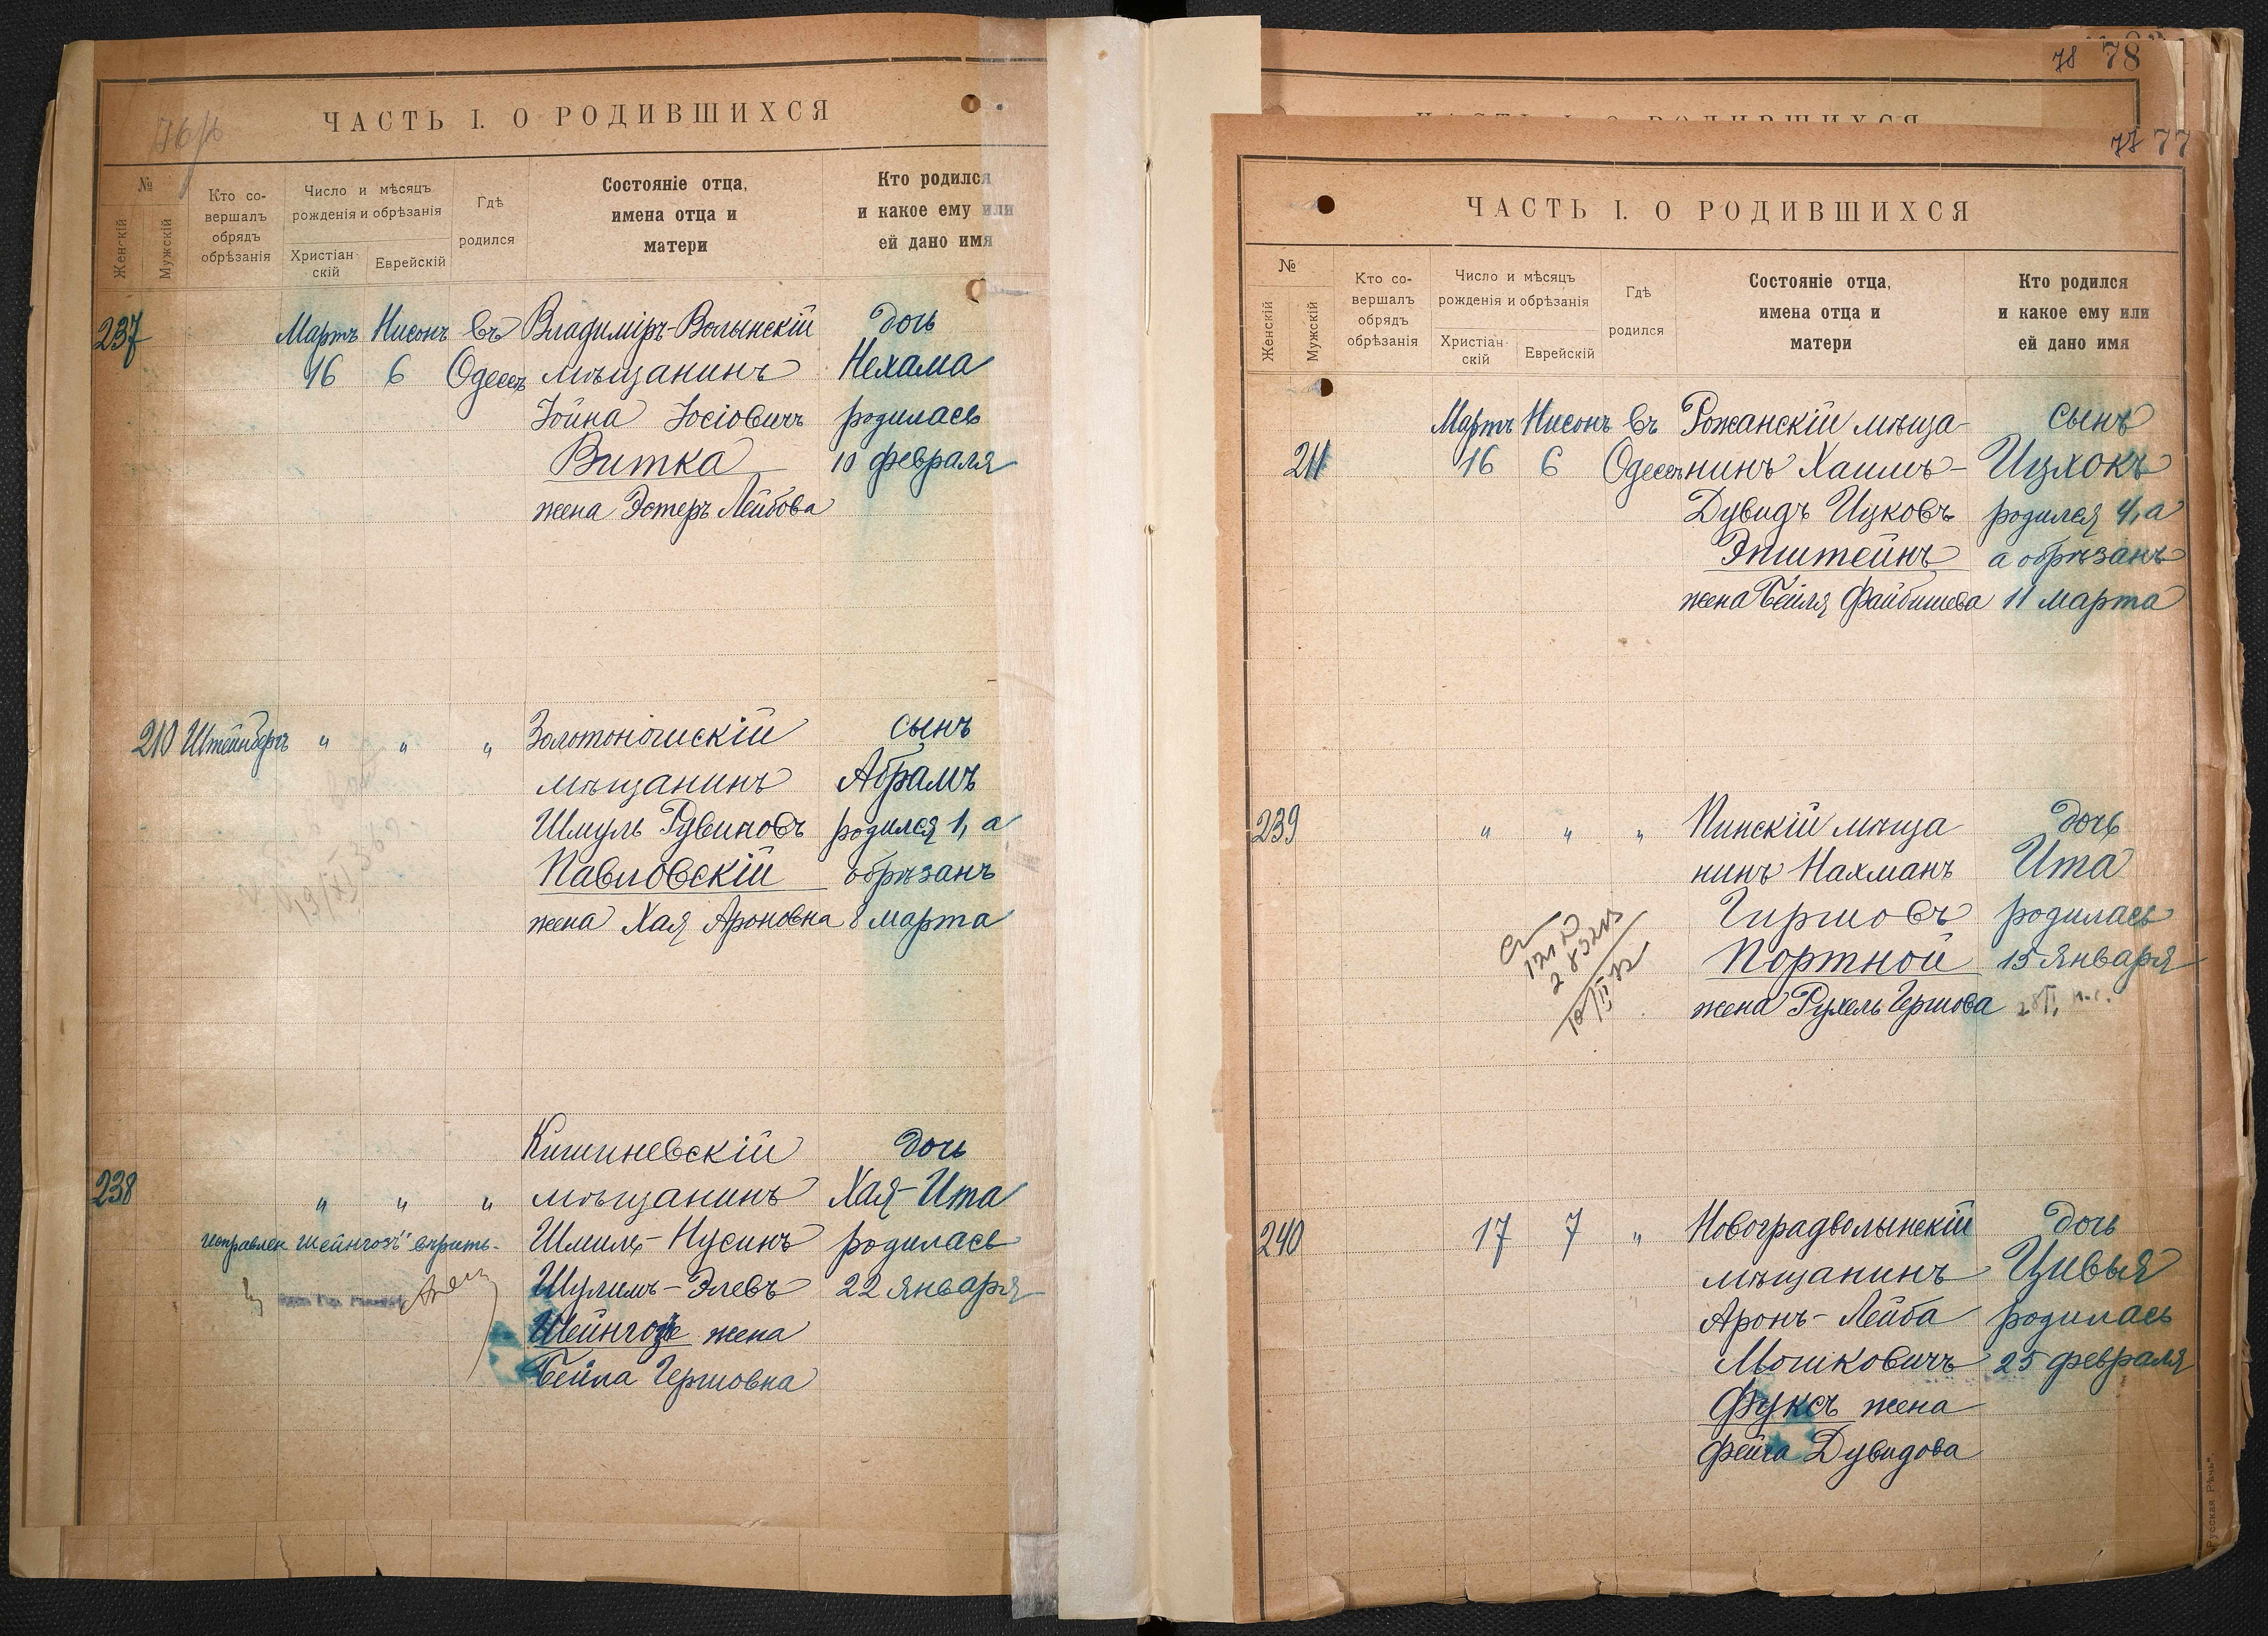 ЧАСТЬ I. О РОДИВШИХСЯ
№
Женскій
Мужскій
Кто со-
вершалъ
обрядъ
обрѣзанія
Число и мѣсяцъ
рожденія и обрѣзанія
Христіан-
скій
Еврейскій
Гдѣ
родился
Состояніе отца,
имена отца и
матери
Кто родился
и какое ему или
ей дано имя
237 Мартъ Нисонъ въ Владиміръ-Волынскій дочь
16 6 Одессѣ мѣщанинъ Нехама
Іойна Іосіовичъ родилась
Витка 10 февраля
жена Эстеръ Лейбова
210 Штейнберъ " " " Золотоношскій сынъ
мѣщанинъ Абрамъ
Шмуль Рувиновъ родился 1, а
Павловскій обрѣзанъ
жена Хая Ароновна 8 марта
Кишиневскій дочь
238 " " " мѣщанинъ Хая-Ита
исправлен Шейнгозъ" вѣрить. Шмиль-Нусинъ родилась
Шулимъ-Элевъ 22 января
Шейнгозъ жена
Бейла Гершовна
78 78
77 77
ЧАСТЬ I. О РОДИВШИХСЯ
№
Женскій
Мужскій
Кто со-
вершалъ
обрядъ
обрѣзанія
Число и мѣсяцъ
рожденія и обрѣзанія
Христіан-
скій
Еврейскій
Гдѣ
родился
Состояніе отца,
имена отца и
матери
Кто родился
и какое ему или
ей дано имя
Мартъ Нисонъ въ Рожанскій мѣща- сынъ
211 16 6 Одессѣ нинъ Хаимъ- Ицхокъ
Дувидъ Ицковъ родился 4, а
Эпштейнъ а обрѣзанъ
жена Бейля Файбишева 11 марта
239 " " " Пинскій мѣща дочь
нинъ Нахманъ Ита
Гиршовъ родилась
Портной 15 января
жена Рухель Гершова 28/I. н.с.
240 17 7 " Новоградволынскій дочь
мѣщанинъ Цивья
Аронъ-Лейба родилась
Мошковичъ 25 февраля
Фуксъ жена
Фейга Дувидова
"Русская Рѣчь"